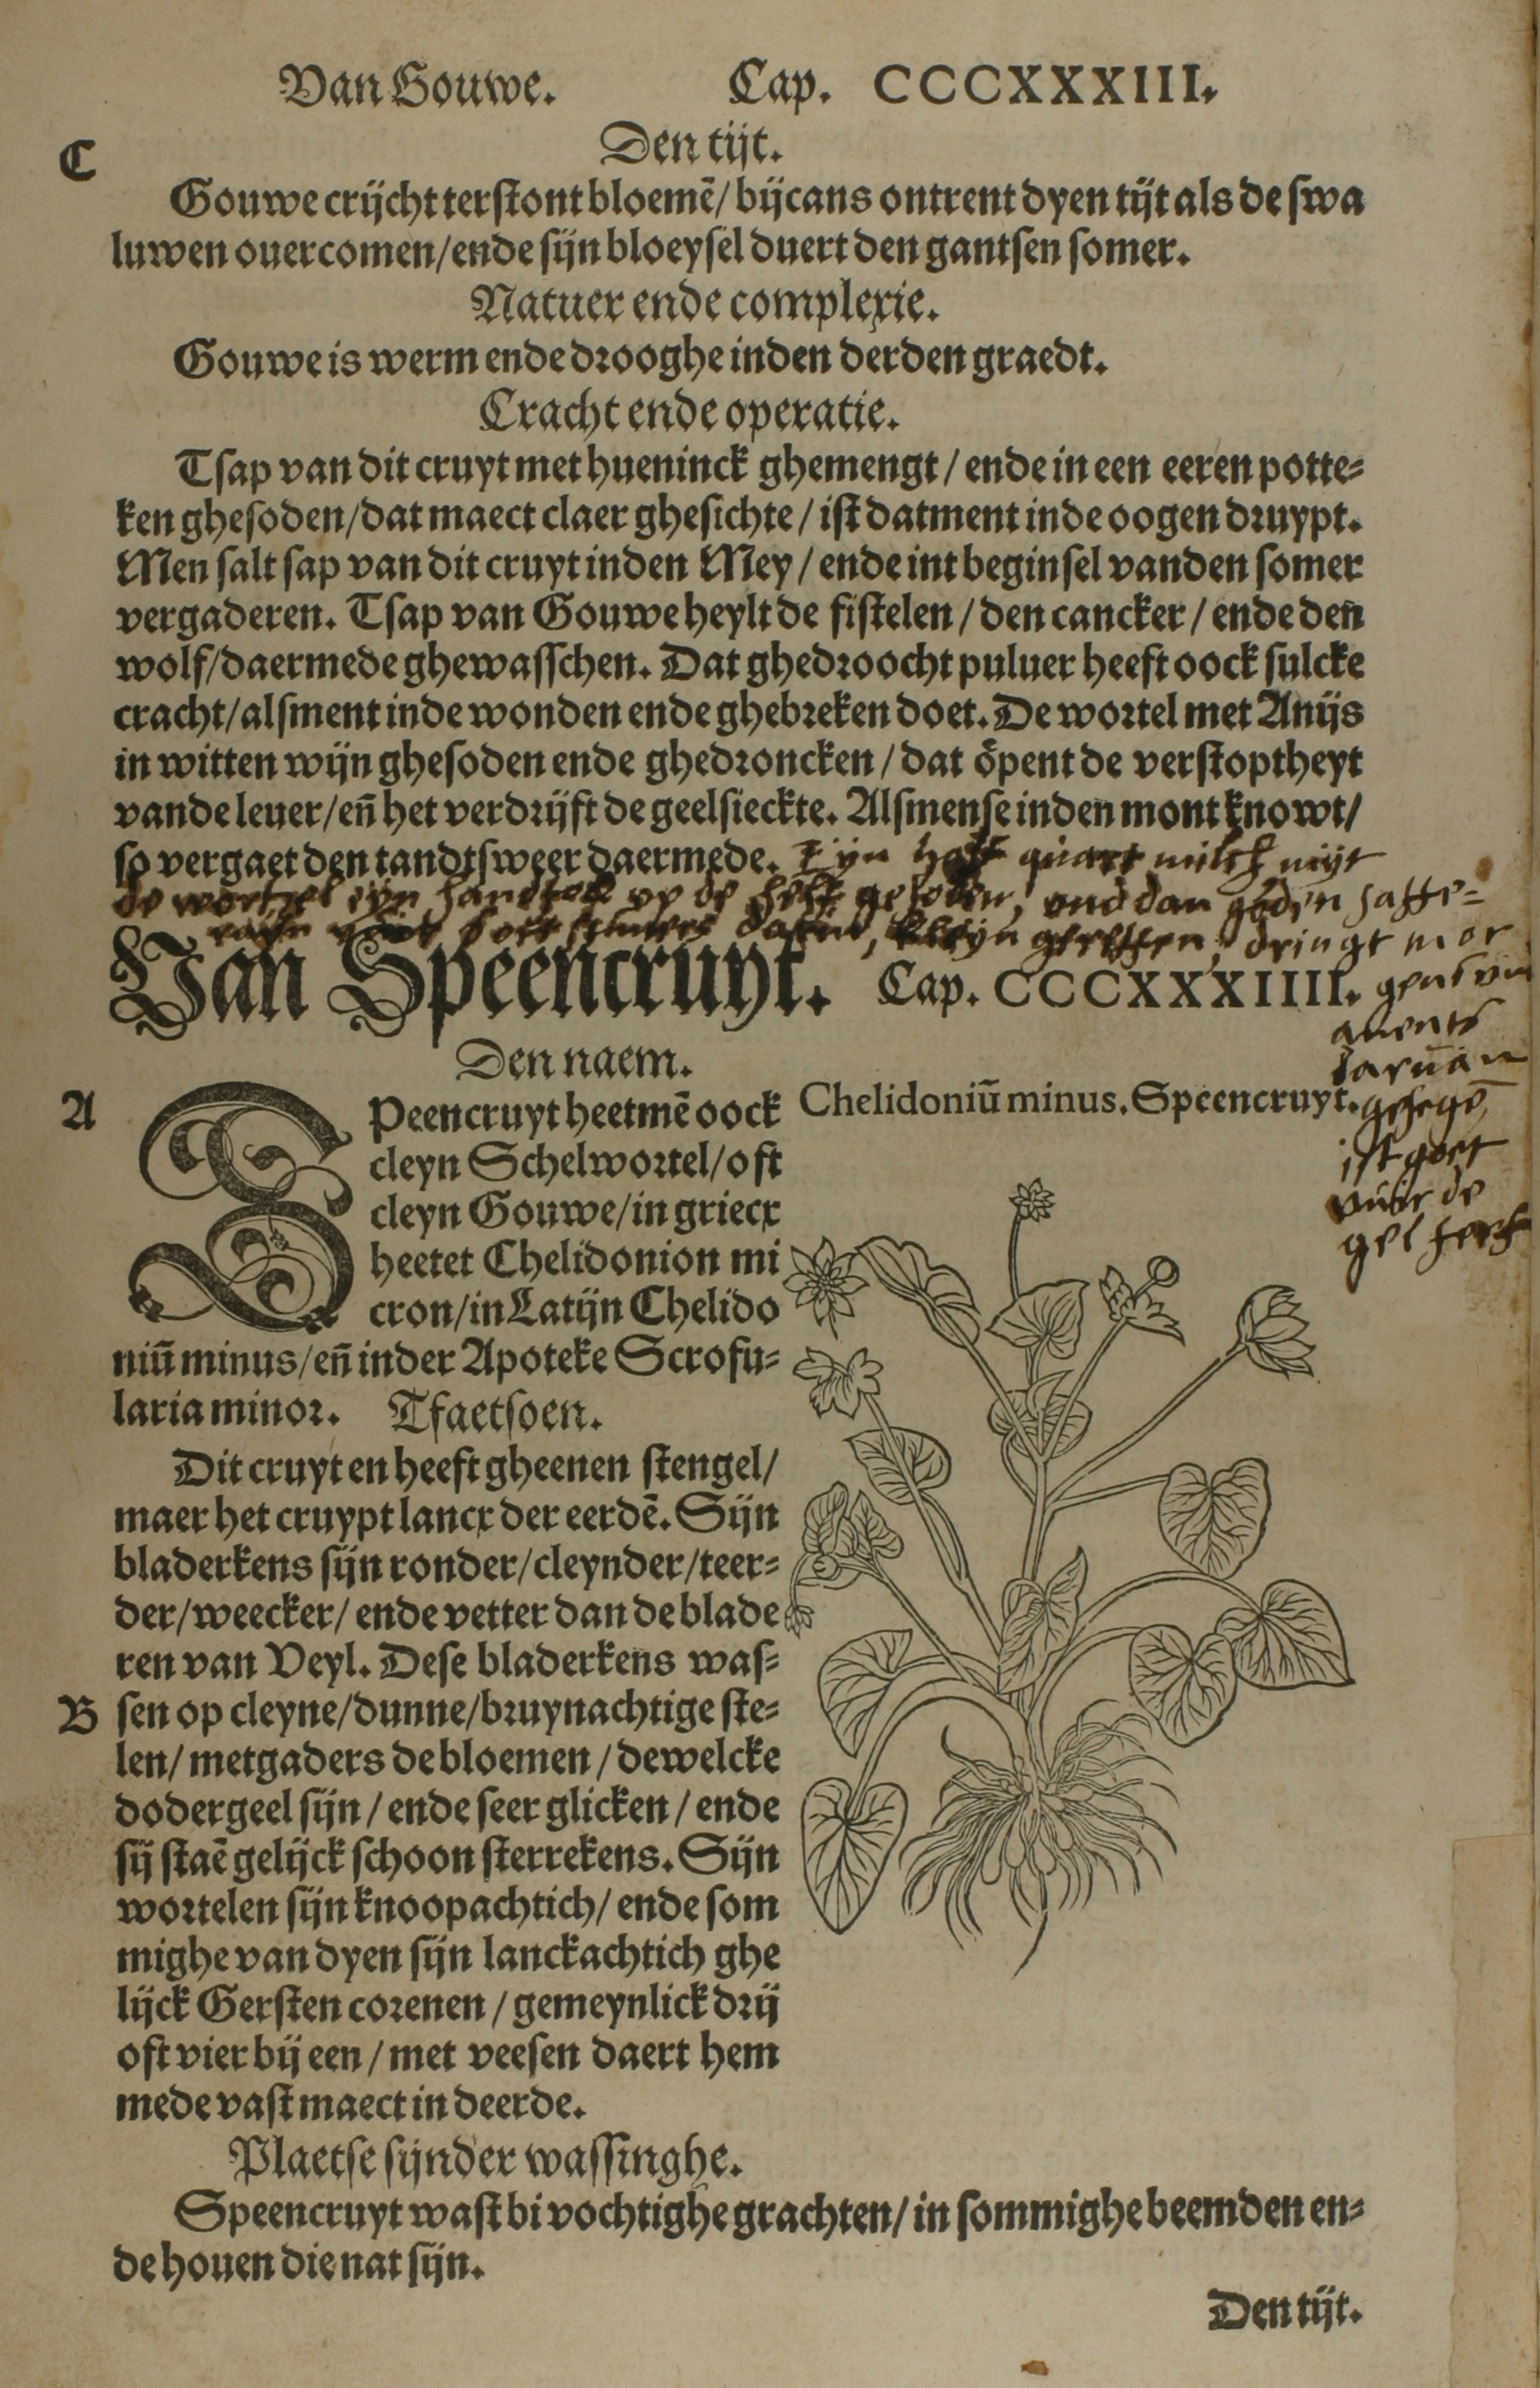 Van Gouwe. Cap. CCCXXXIII.
C
Den tijt.
Gouwe crijcht terstont bloemē/ bijcans ontrent dyen tijt als de swa
luwen ouercomen/ende sijn bloeysel duert den gantsen somer.
Natuer ende complexie.
Gouwe is werm ende drooghe inden derden graedt.
Cracht ende operatie.
Tsap van dit cruyt met hueninck ghemengt / ende in een eeren potte-
ken ghesoden/dat maect claer ghesichte / ist datment inde oogen druypt.
Men salt sap van dit cruyt inden Mey / ende int beginsel vanden somer
vergaderen. Tsap van Gouwe heylt de fistelen / den cancker / ende den
wolf/daermede ghewasschen. Dat ghedroocht puluer heeft oock sulcke
cracht/alsment inde wonden ende ghebreken doet. De wortel met Anijs
in witten wijn ghesoden ende ghedroncken / dat opent de verstoptheyt
vande leuer/eñ het verdrijft de geelsieckte. Alsmense inden mont knowt/
so vergaet den tandtsweer daermede. Eyn half quart milch mijt
de wortzel eyn handvoll vp de helft gesoden, vnd dan goden saffe-
daein, kleyn gereven, dringt mor
Van Speencruyt. Cap. CCCXXXIIII. gens vn
auents
daruan
gesego
ist goet
vuir de
gel
Den naem.
A
SPeencruyt heetmē oock
cleyn Schelwortel/oft
cleyn Gouwe/in griecx
heetet Chelidonion mi
cron/in Latijn Chelido
niū minus/eñ inder Apoteke Scrofu-
laria minor. Tfaetsoen.
Dit cruyt en heeft gheenen stengel/
maer het cruypt lancx der eerdē. Sijn
bladerkens sijn ronder/cleynder/teer-
der/weecker/ ende vetter dan de blade
ren van Veyl. Dese bladerkens was-
B sen op cleyne/dunne/bruynachtige ste-
len/ metgaders de bloemen / dewelcke
dodergeel sijn / ende seer glicken / ende
sij staē gelijck schoon sterrekens. Sijn
wortelen sijn knoopachtich/ ende som
mighe van dyen sijn lanckachtich ghe
lijck Gersten corenen / gemeynlick drij
oft vier bij een / met veesen daert hem
mede vast maect in deerde.
Chelidoniū minus. Speencruyt.
Plaetse sijnder wassinghe.
Speencruyt wast bi vochtighe grachten/ in sommighe beemden en-
de houen die nat sijn.
Den tijt.